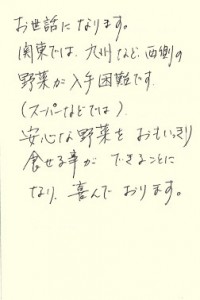 お世話になります。
関東では、九州など、西側の
野菜が入手困難です。
(スーパーなどでは)
安心な野菜をおもいっきり
食せる事ができることに
なり、喜んでおります。